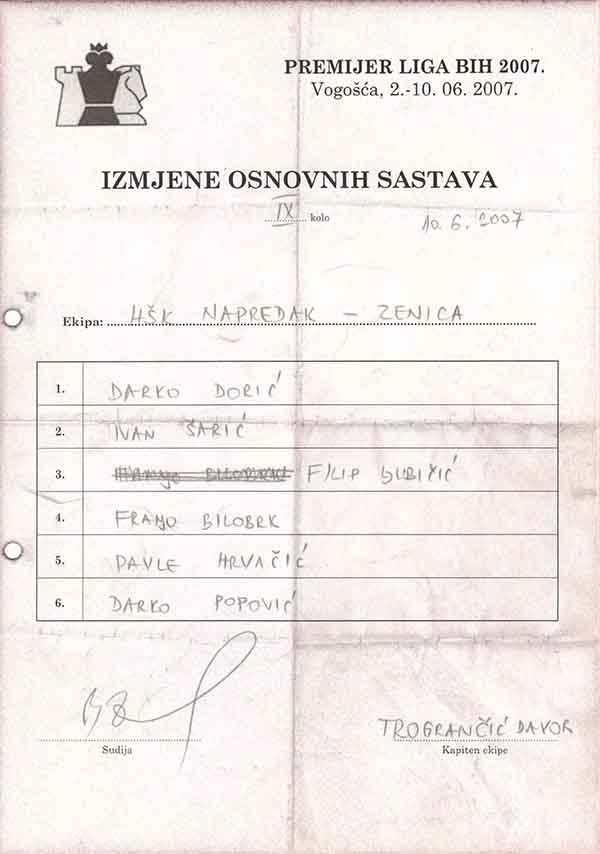 PREMIJER LIGA BIH 2007.
Vogošća, 2.-10. 06. 2007.
IZMJENE OSNOVNIH SASTAVA
IX kolo 10.6.2007
Ekipa: HŠK NAPREDAK - ZENICA
1. DARKO DORIĆ
2. IVAN ŠARIĆ
3. FRANJO BILOBRK FILIP
4. FRANJO BILOBRK
5. PAVLE HRVAČIĆ
6. DARKO POPOVIĆ
TROGRANČIĆ DAVOR
Sudija Kapiten ekipe